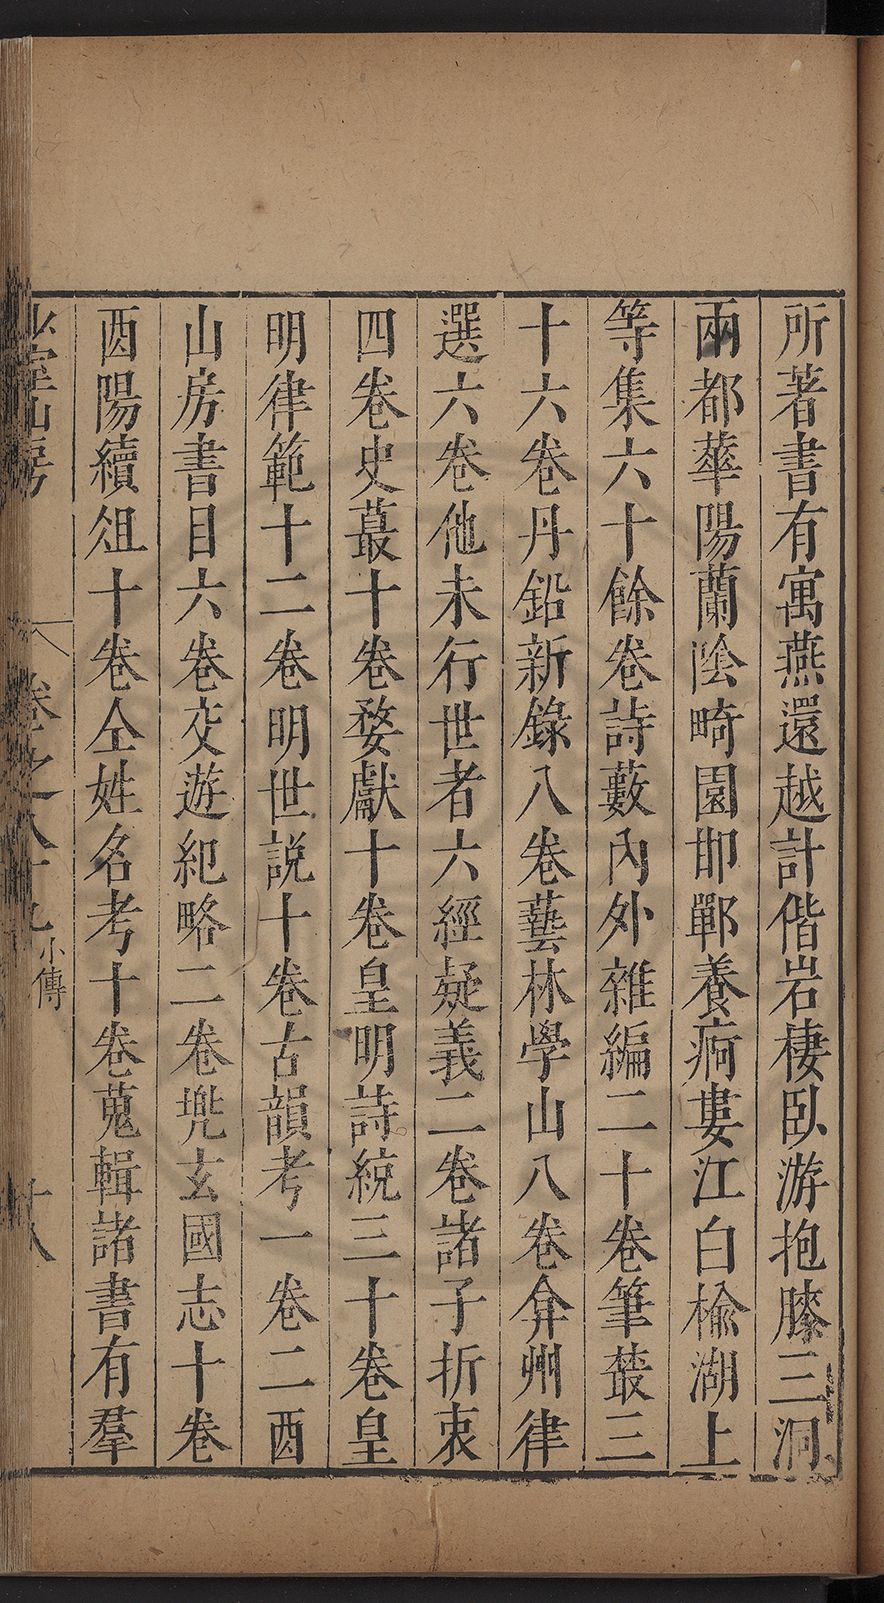 所著書有寓燕還越計偕岩棲臥游抱膝三洞
兩都華陽蘭陰畸園邯鄲養痾婁江白榆湖上
等集六十餘卷詩藪內外雜編二十卷筆叢三
十六卷丹鉛新錄八卷藝林學山八卷弇州律
選六卷他未行世者六經疑義二卷諸子折衷
四卷史蕞十卷婺獻十卷皇明詩統三十卷皇
明律範十二卷明世説十卷古韻考一卷二酉
山房書目六卷交遊紀略二卷兠玄國志十卷
酉陽續俎十卷仝姓名考十卷蒐輯諸書有羣
室山房
卷之八十九
小傳
十八